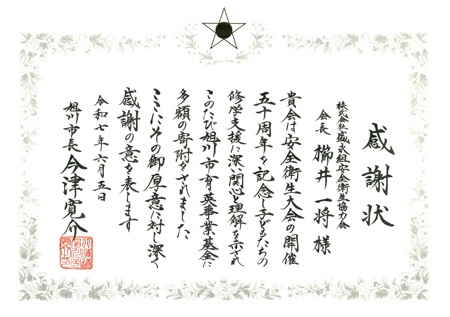 感謝状
株式会社盛永組安全衛生協力会
会長 櫛井一将様
貴会は安全衛生大会の開催
五十周年を記念し子どもたちの
修学支援に深い関心と理解を示され
このたび旭川市育英事業基金に
多額の寄附をされました
ここにその御厚意に対し深く
感謝の意を表します
令和七年六月五日
旭川市長 今津寛介